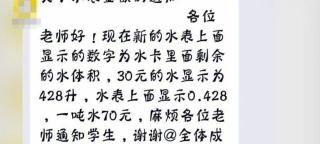 各位
老师好！现在新的水表上面
显示的数字为水卡里面剩余
的水体积，30元的水显示为
428升，水表上面显示0.428
，一吨水70元，麻烦各位老
师通知学生，谢谢@全体成